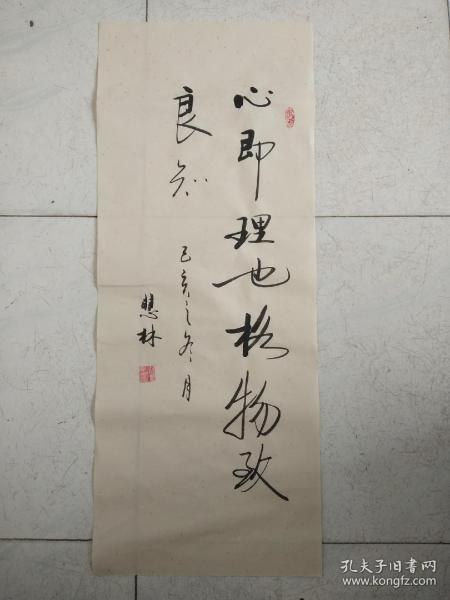 心即理也格物致
良知
己亥之冬月
慧林
孔夫子旧书网
www.kongfz.com